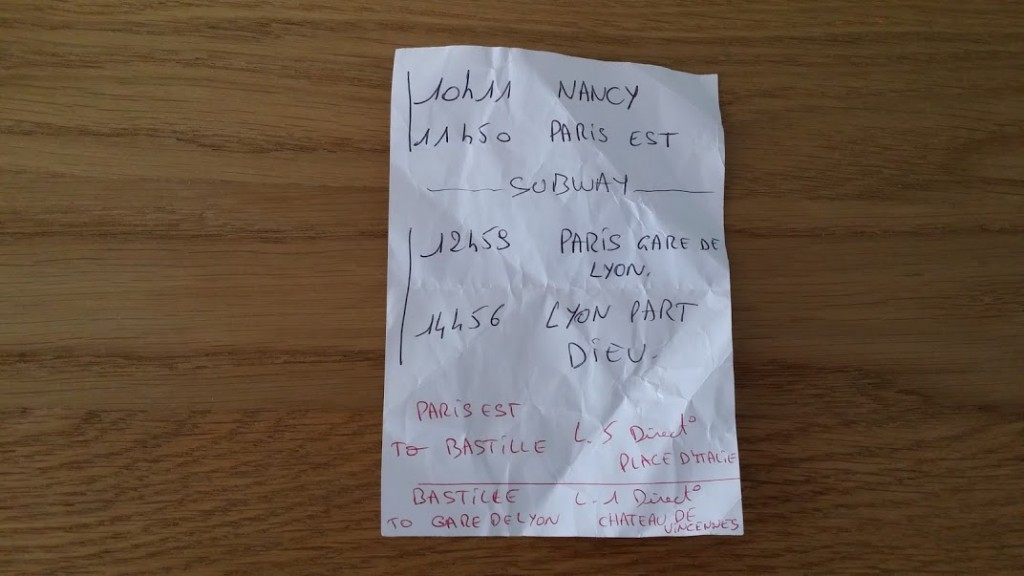 10h11 NANCY
11h50 PARIS EST
SUBWAY
12h59 PARIS GARE DE
LYON.
14h56 LYON PART
DIEU.
PARIS EST
TO BASTILLE L.5 Direct°
PLACE D'ITALIE
BASTILLE L.1 Direct°
TO GARE DE LYON CHATEAU DE
VINCENNES